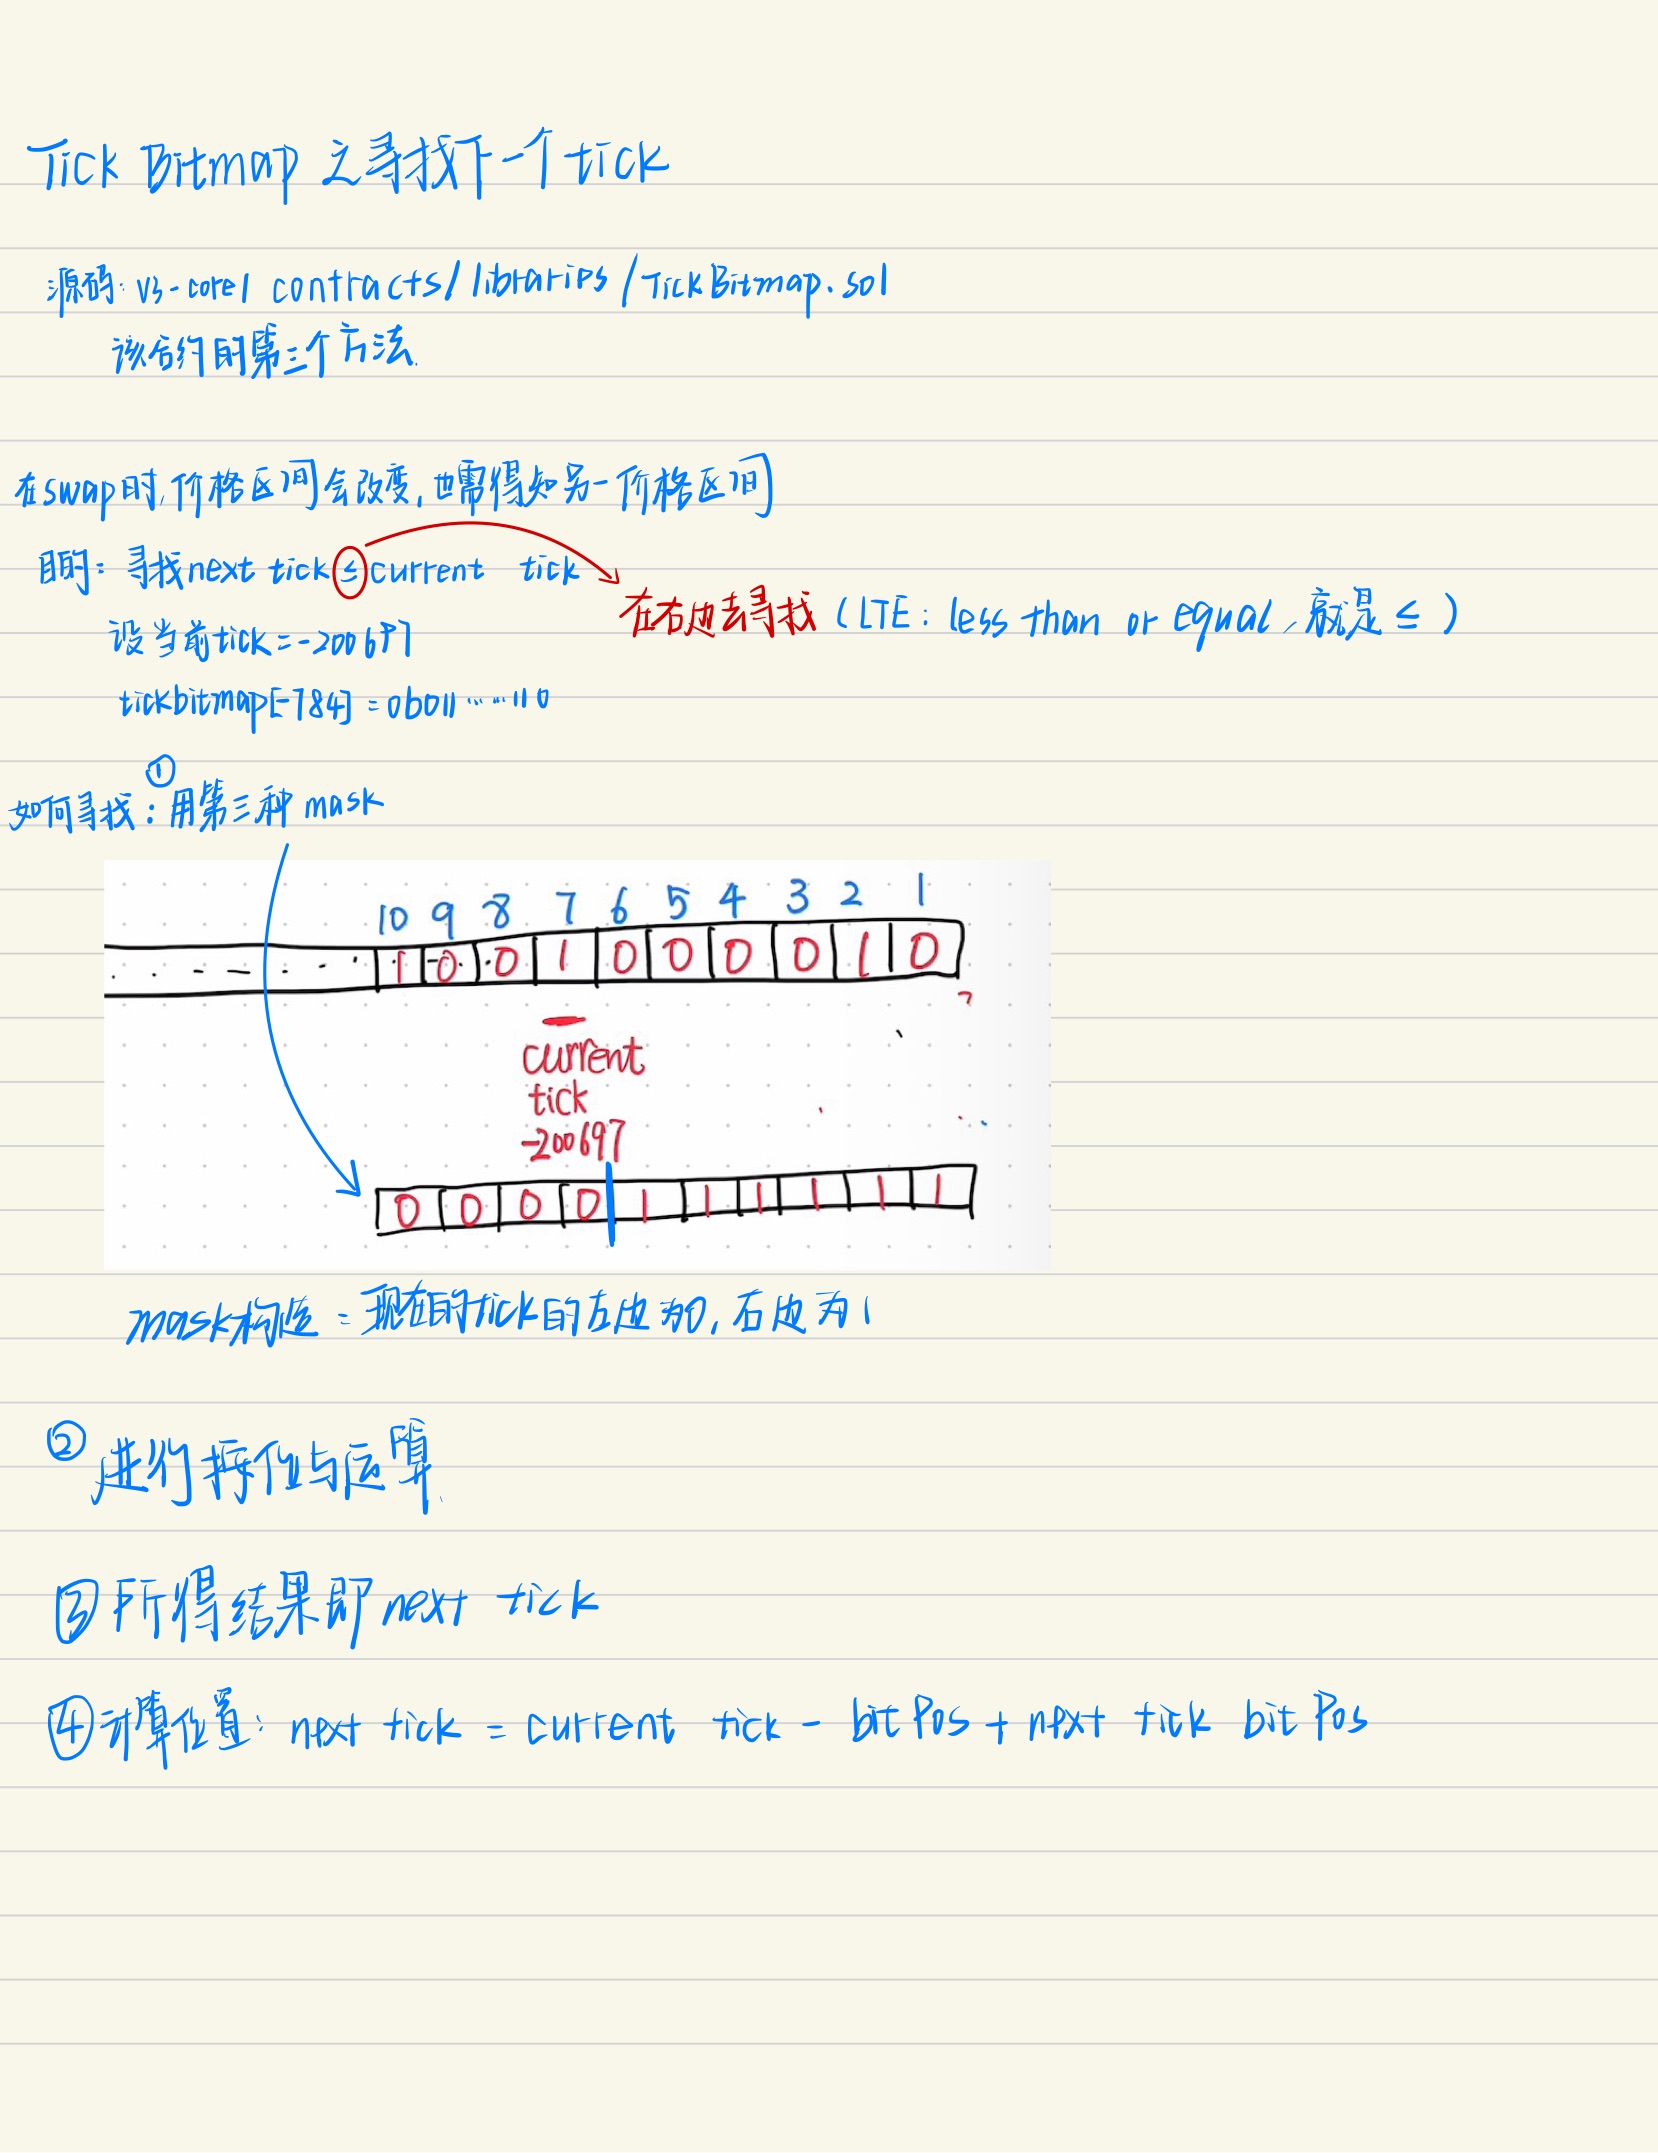 Tick Bitmap 之寻找下一个tick
源码: V3-core/ contracts/libraries/TickBitmap.sol
该合约的第三个方法.
在swap时,价格区间会改变,也需得知另一价格区间
目的: 寻找next tick≤current tick
在右边去寻找 (LTE: less than or equal,就是≤)
设当前tick=-200697
tickbitmap[-784]=0b011……110
①
如何寻找:用第三种mask
10 9 8 7 6 5 4 3 2 1
1 0 0 1 0 0 0 0 1 0
current
tick
-200697
0 0 0 0 1 1 1 1 1 1
mask构造=现在的tick的左边为0,右边为1
② 进行按位与运算.
③所得结果即next tick
④计算位置: next tick = current tick - bitPos + next tick bitPos